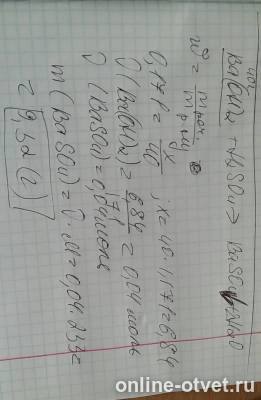 40г
Ba(OH)2 + H2SO4 → BaSO4↓ + H2O
w = m р.в. / m р-ра
0,171 = x / 40 ; x = 40 · 0,171 = 6,84
ν(Ba(OH)2) = 6,84 / 171 = 0,04 моль
ν(BaSO4) = 0,04 моль
m(BaSO4) = ν · M = 0,04 · 233 =
= 9,32 (г)
online-otvet.ru